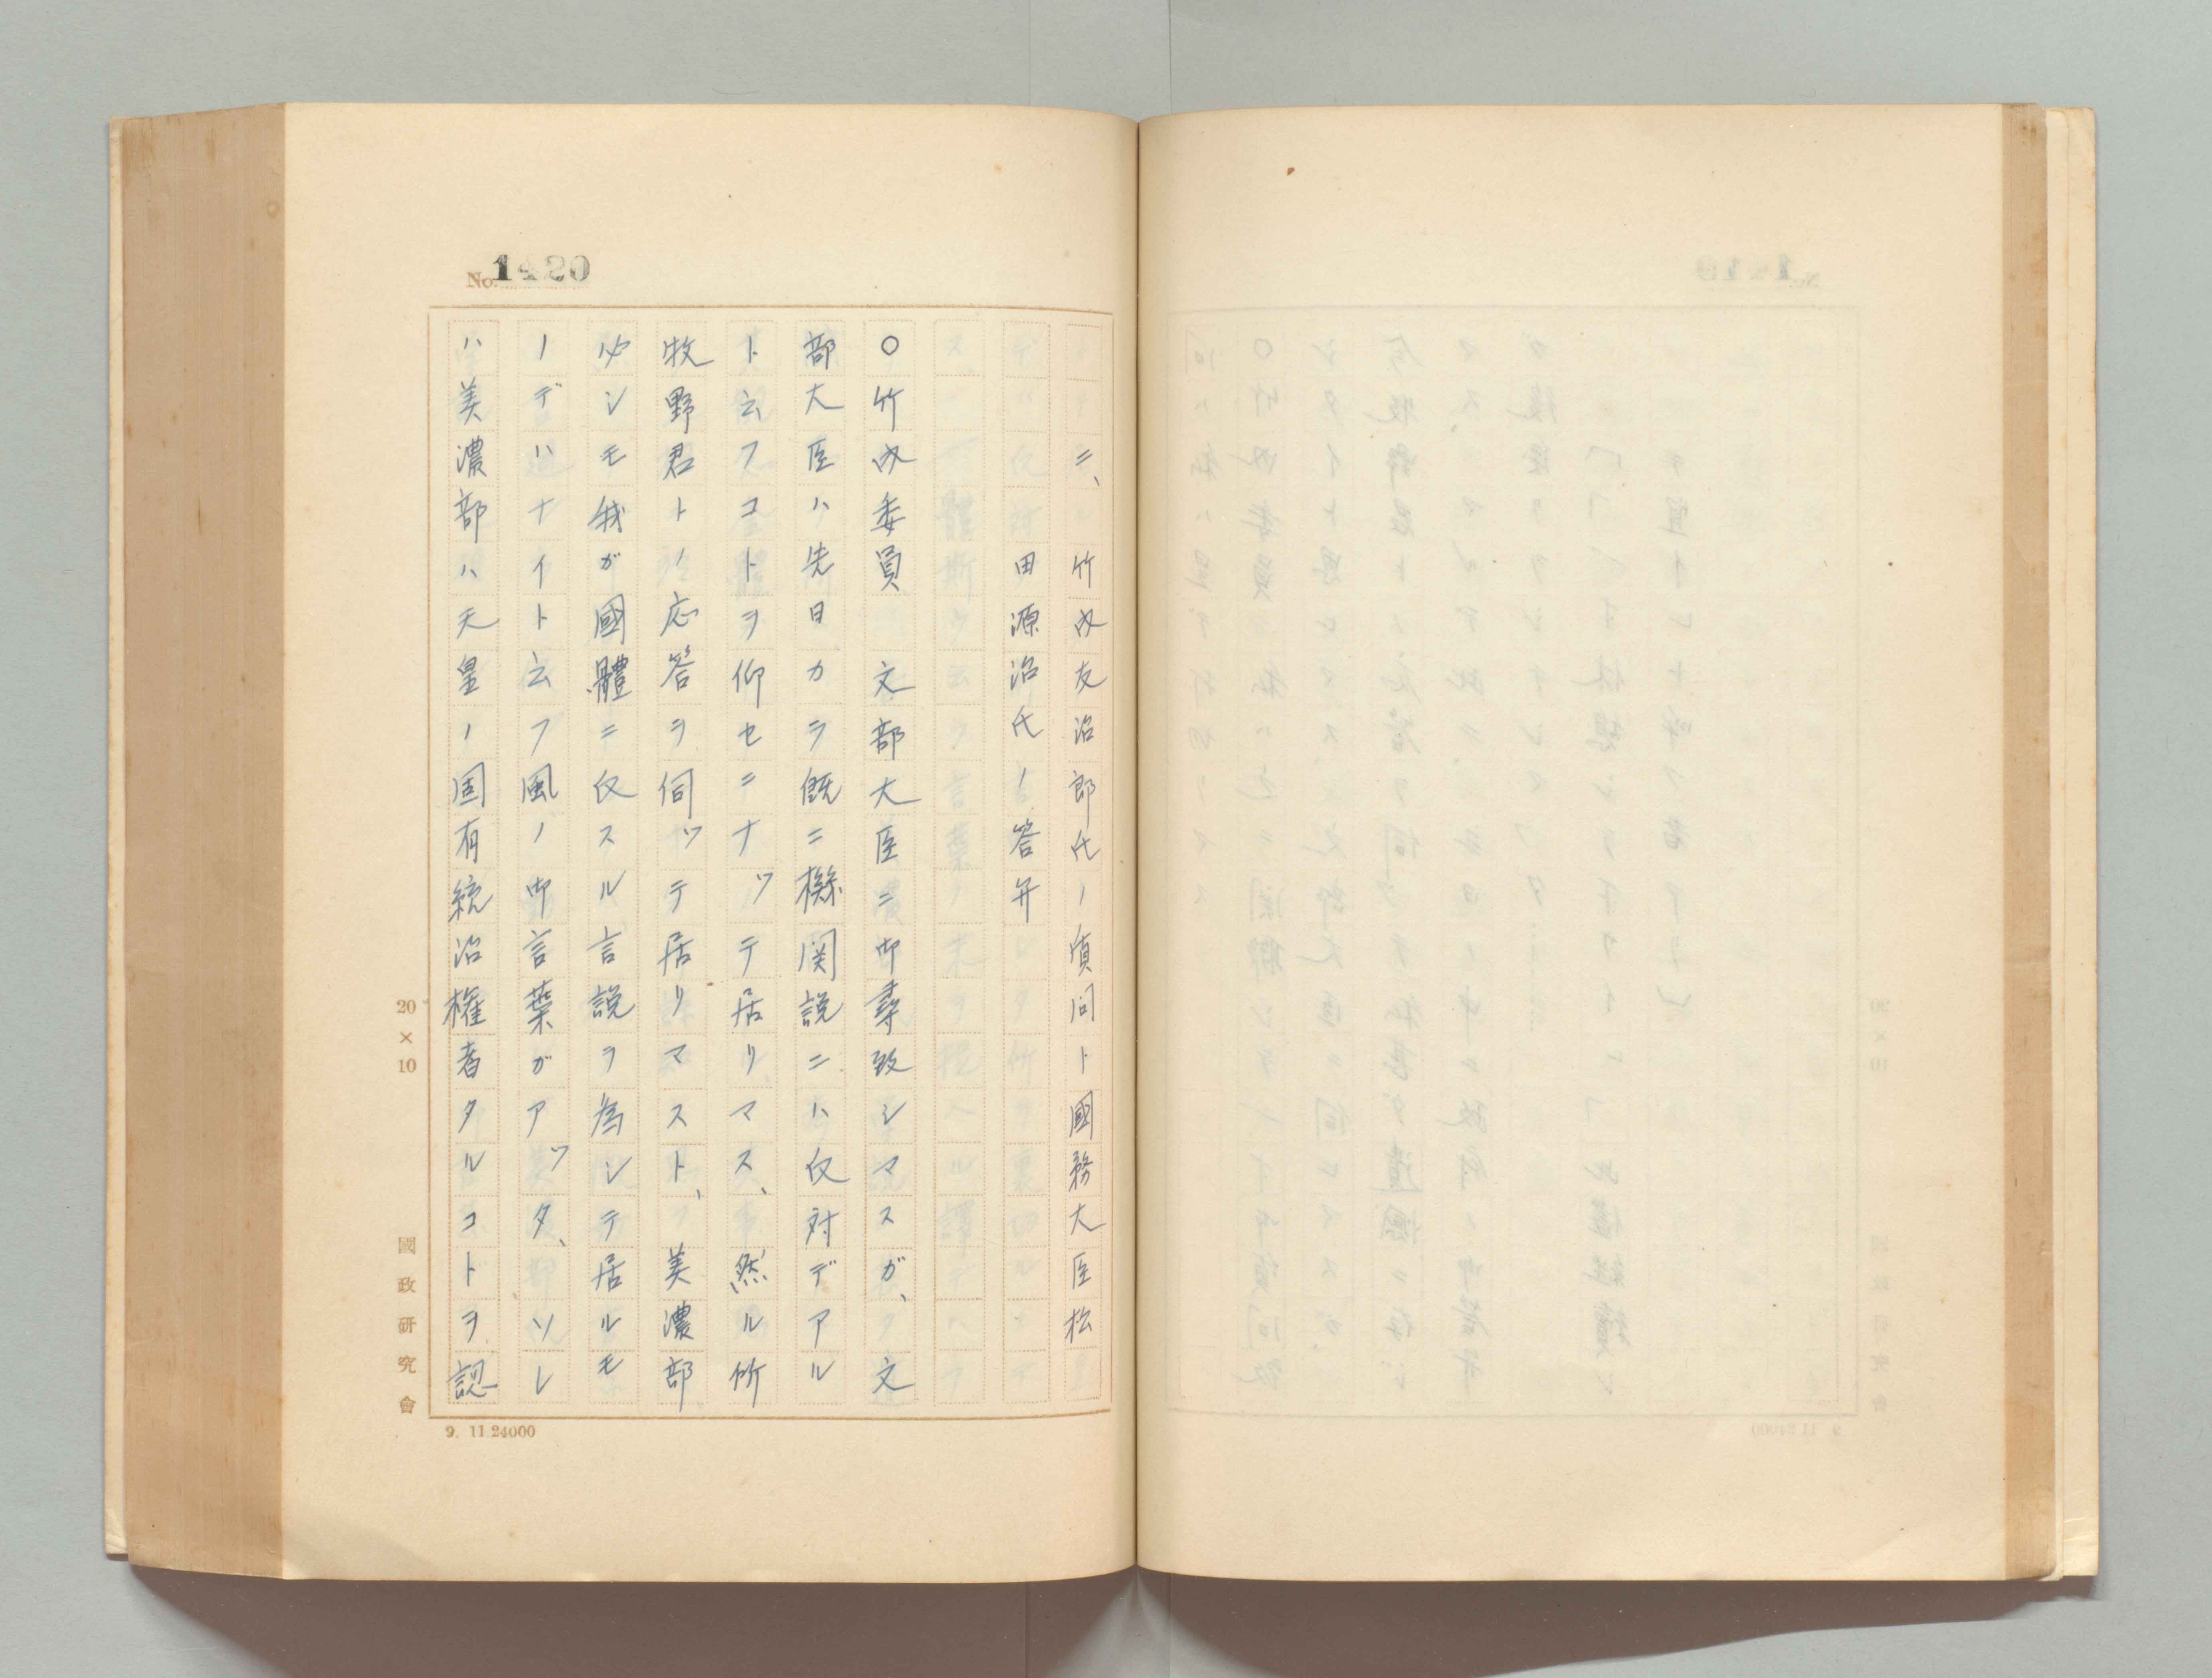 No. 1420
二、竹内友治郎氏ノ質問ト國務大臣松
田源治氏ノ答弁
○竹内委員 文部大臣ニ御尋致シマスガ、文
部大臣ハ先日カラ既ニ機関説ニハ反対デアル
ト云フコトヲ仰セニナツテ居リマス、然ル所
牧野君トノ応答ヲ伺ツテ居リマスト、美濃部
必シモ我ガ國體ニ反スル言説ヲ為シテ居ルモ
ノデハナイト云フ風ノ御言葉ガアツタ、ソレ
ハ美濃部ハ天皇ノ固有統治権者タルコトヲ認
20×10
國政研究會
9. 11 24000